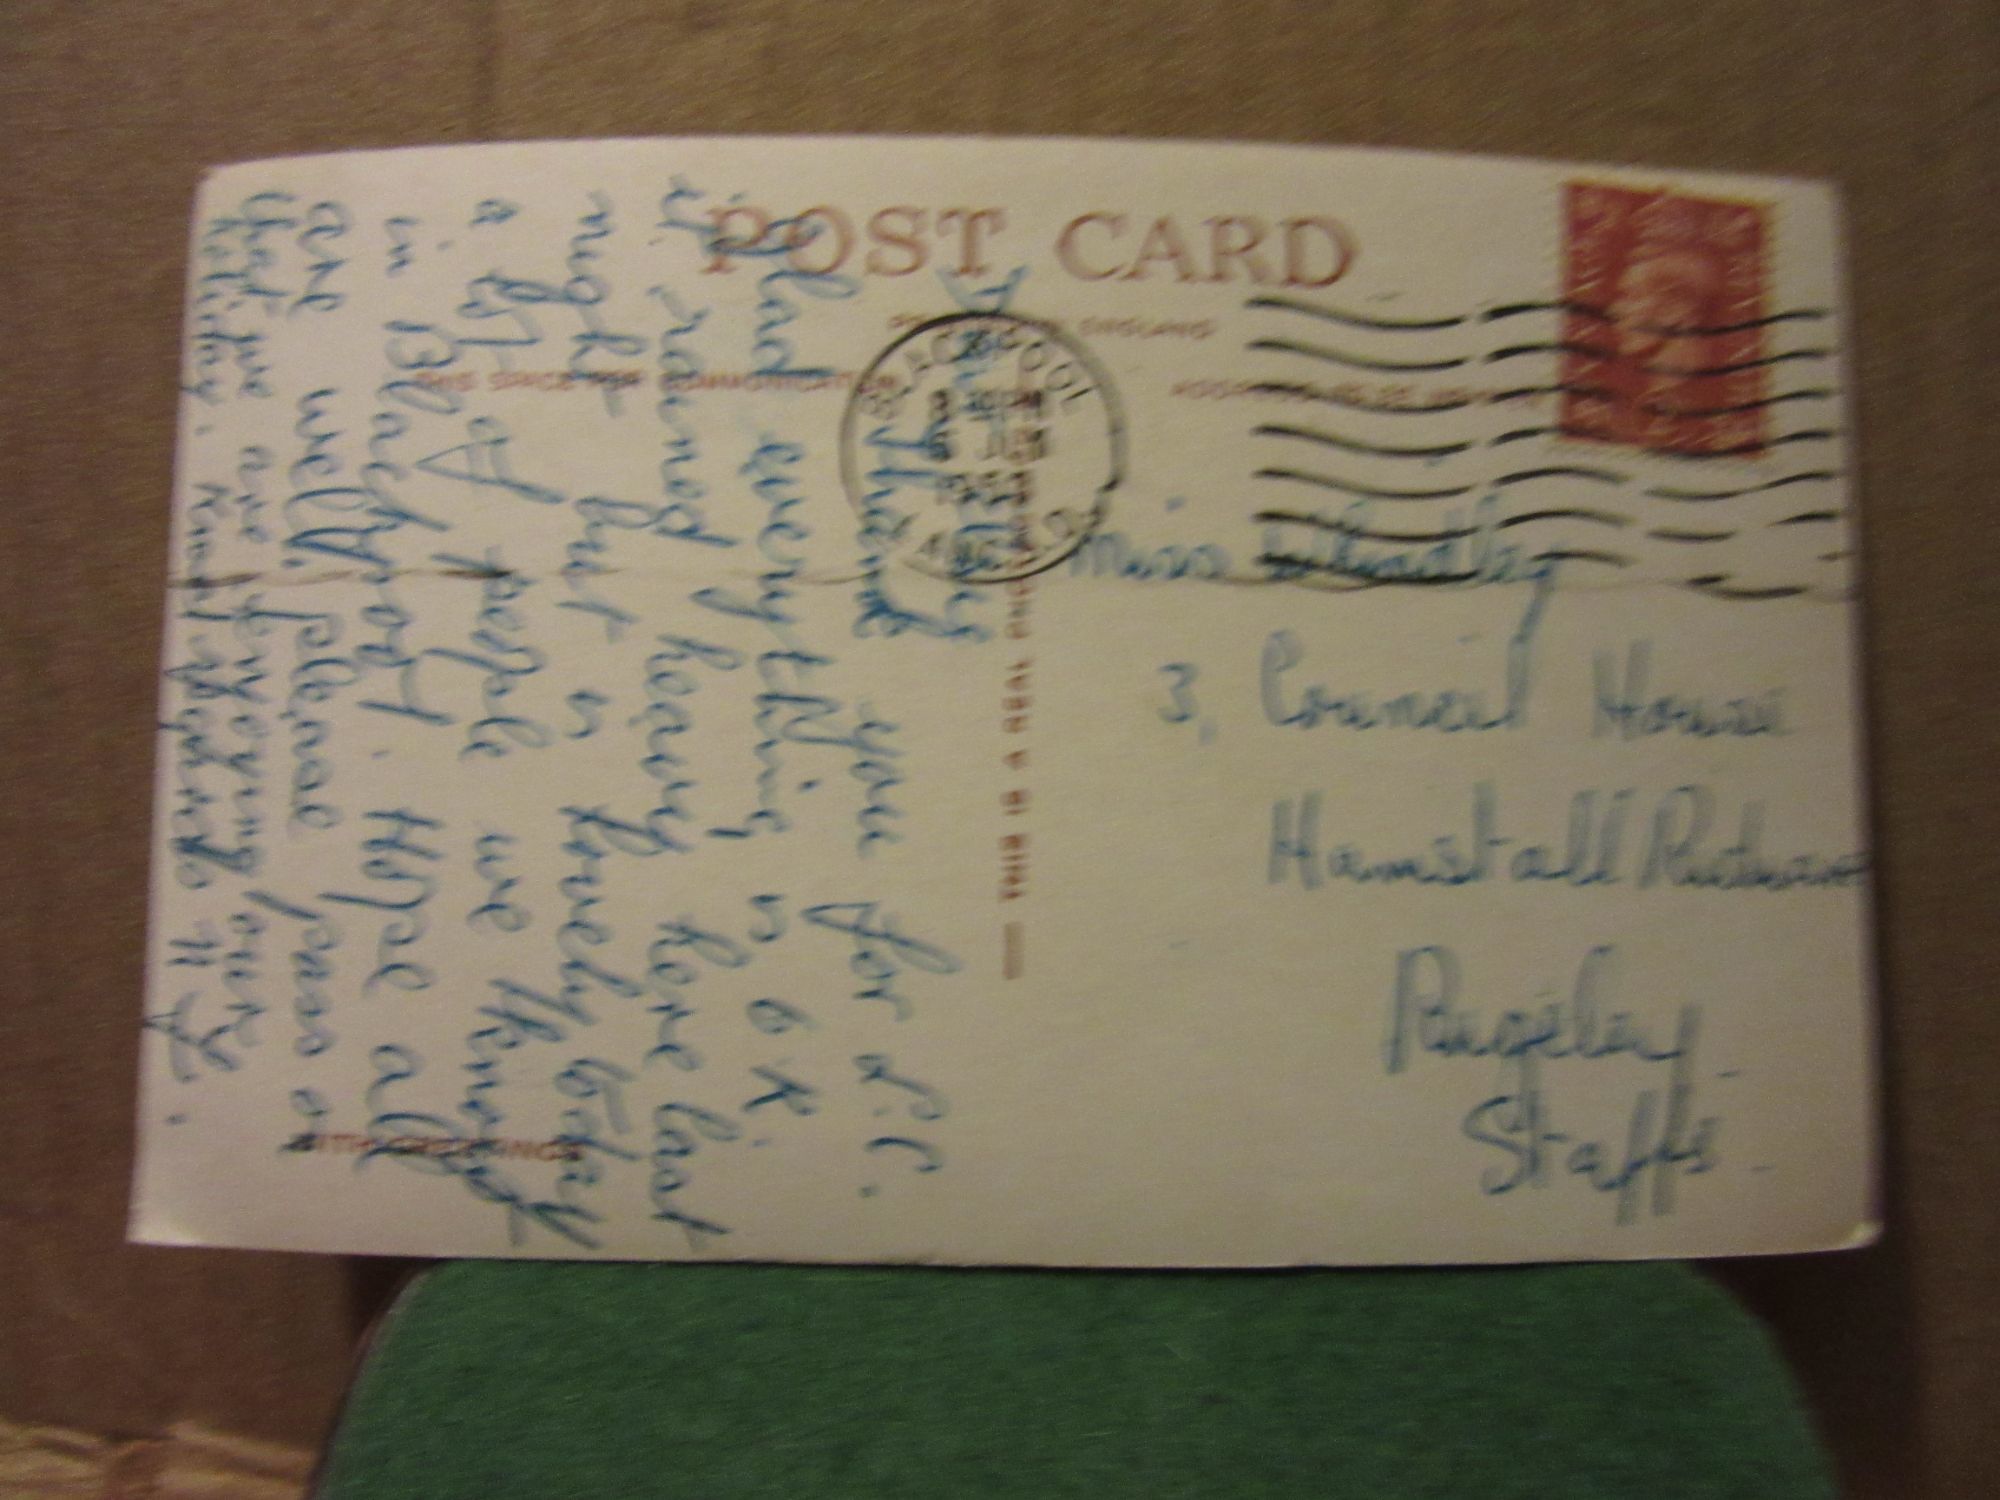 POST CARD
ENGLAND
THIS SPACE FOR COMMUNICATION
BLACKPOOL
LANCS
Miss
3, Council House
Hamstall Ridware
Rugeley
Staffs.
THIS IS A REAL PHOTOGRAPH
WITH GREETINGS
Thank you for L.C.
glad everything is O K.
it rained heavy here last
night but is lovely today
a lot of people we know
in Blackpool. Hope all
are well. please pass on
that we are enjoying our
holiday. Kind regards